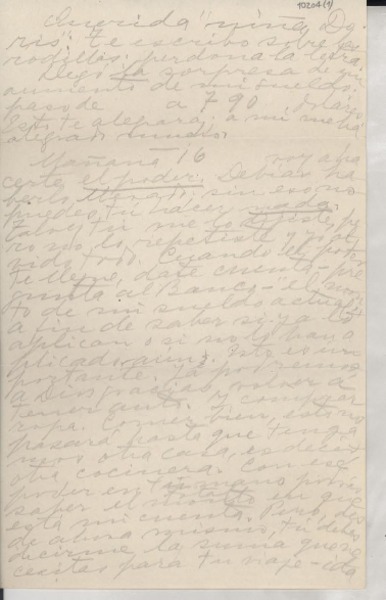 10204(1)
Querida "niña Do-
ris": te escribo sobre las
rodillas; perdona la letra.
Llegó la sorpresa de un
aumento de mi sueldo:
paso de a 790 dólares
Esto te alegrará; a mí me ha
alegrado mucho.
Mañana 16 voy a ha-
certe el poder. Debías ha-
berlo llevado; sin eso no
puedes tú hacer nada.
tú me lo dijiste, pe-
ro no lo repetiste y yo ol-
vido todo. Cuando el poder
te llegue, date cuenta - pre-
gunta al Banco - el mon-
to de mi sueldo actual
a fin de saber si ya lo
aplican o si no lo han a-
plicado aún. Esto es im-
portante. Ya podremos
a Dios gracias volver a
tener auto. Y comprar
ropa. Comer bien, esto no
pasará hasta que tenga-
mos otra casa, es decir
otra cocinera. Con ese
poder en tu mano podrás
saber el monto en que
está mi cuenta. Pero, des-
de ahora mismo, tú debes
decirme la suma que ne-
cesitas para tu viaje - ida